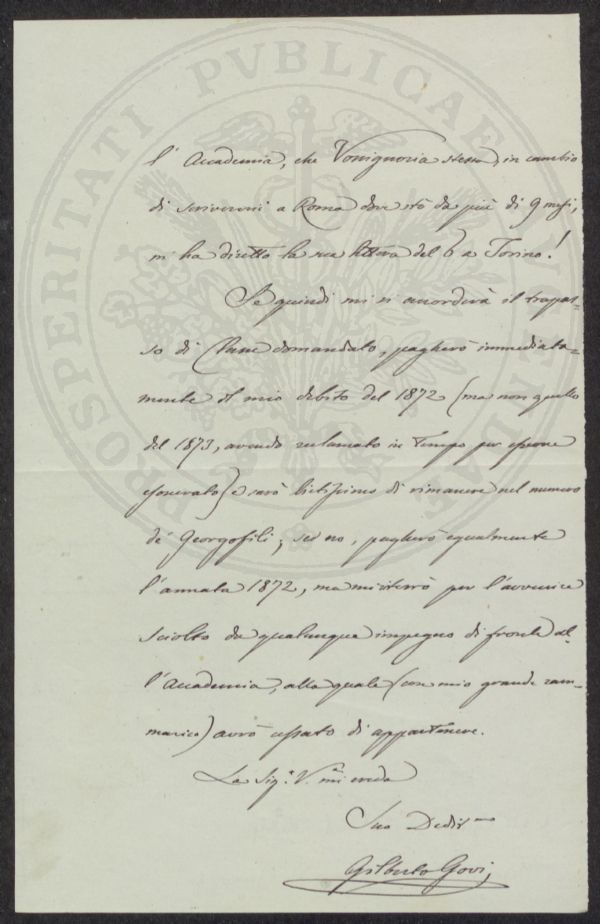 PROSPERITATI PVBLICAE
l'Accademia, che Vonignoria stessa, in cambio
di scrivermi a Roma dove stò da più di 9 mesi,
m'ha diretto la sua lettera del 6 a Torino!
Se quindi mi si accorderà il trapas-
so di Classe domandato, pagherò immediata-
mente il mio debito del 1872 (ma non quello
del 1873, avendo reclamato in tempo per esserne
esonerato) e sarò lietissimo di rimanere nel numero
de' Georgofili; se no, pagherò egualmente
l'annata 1872, ma mi terrò per l'avvenire
sciolto da qualunque impegno di fronte al-
l'Accademia, alla quale (con mio grande ram-
marico) avrò cessato di appartenere.
La Sig.ª V.ª mi creda
Suo Dedis.mo
Gilberto Govi